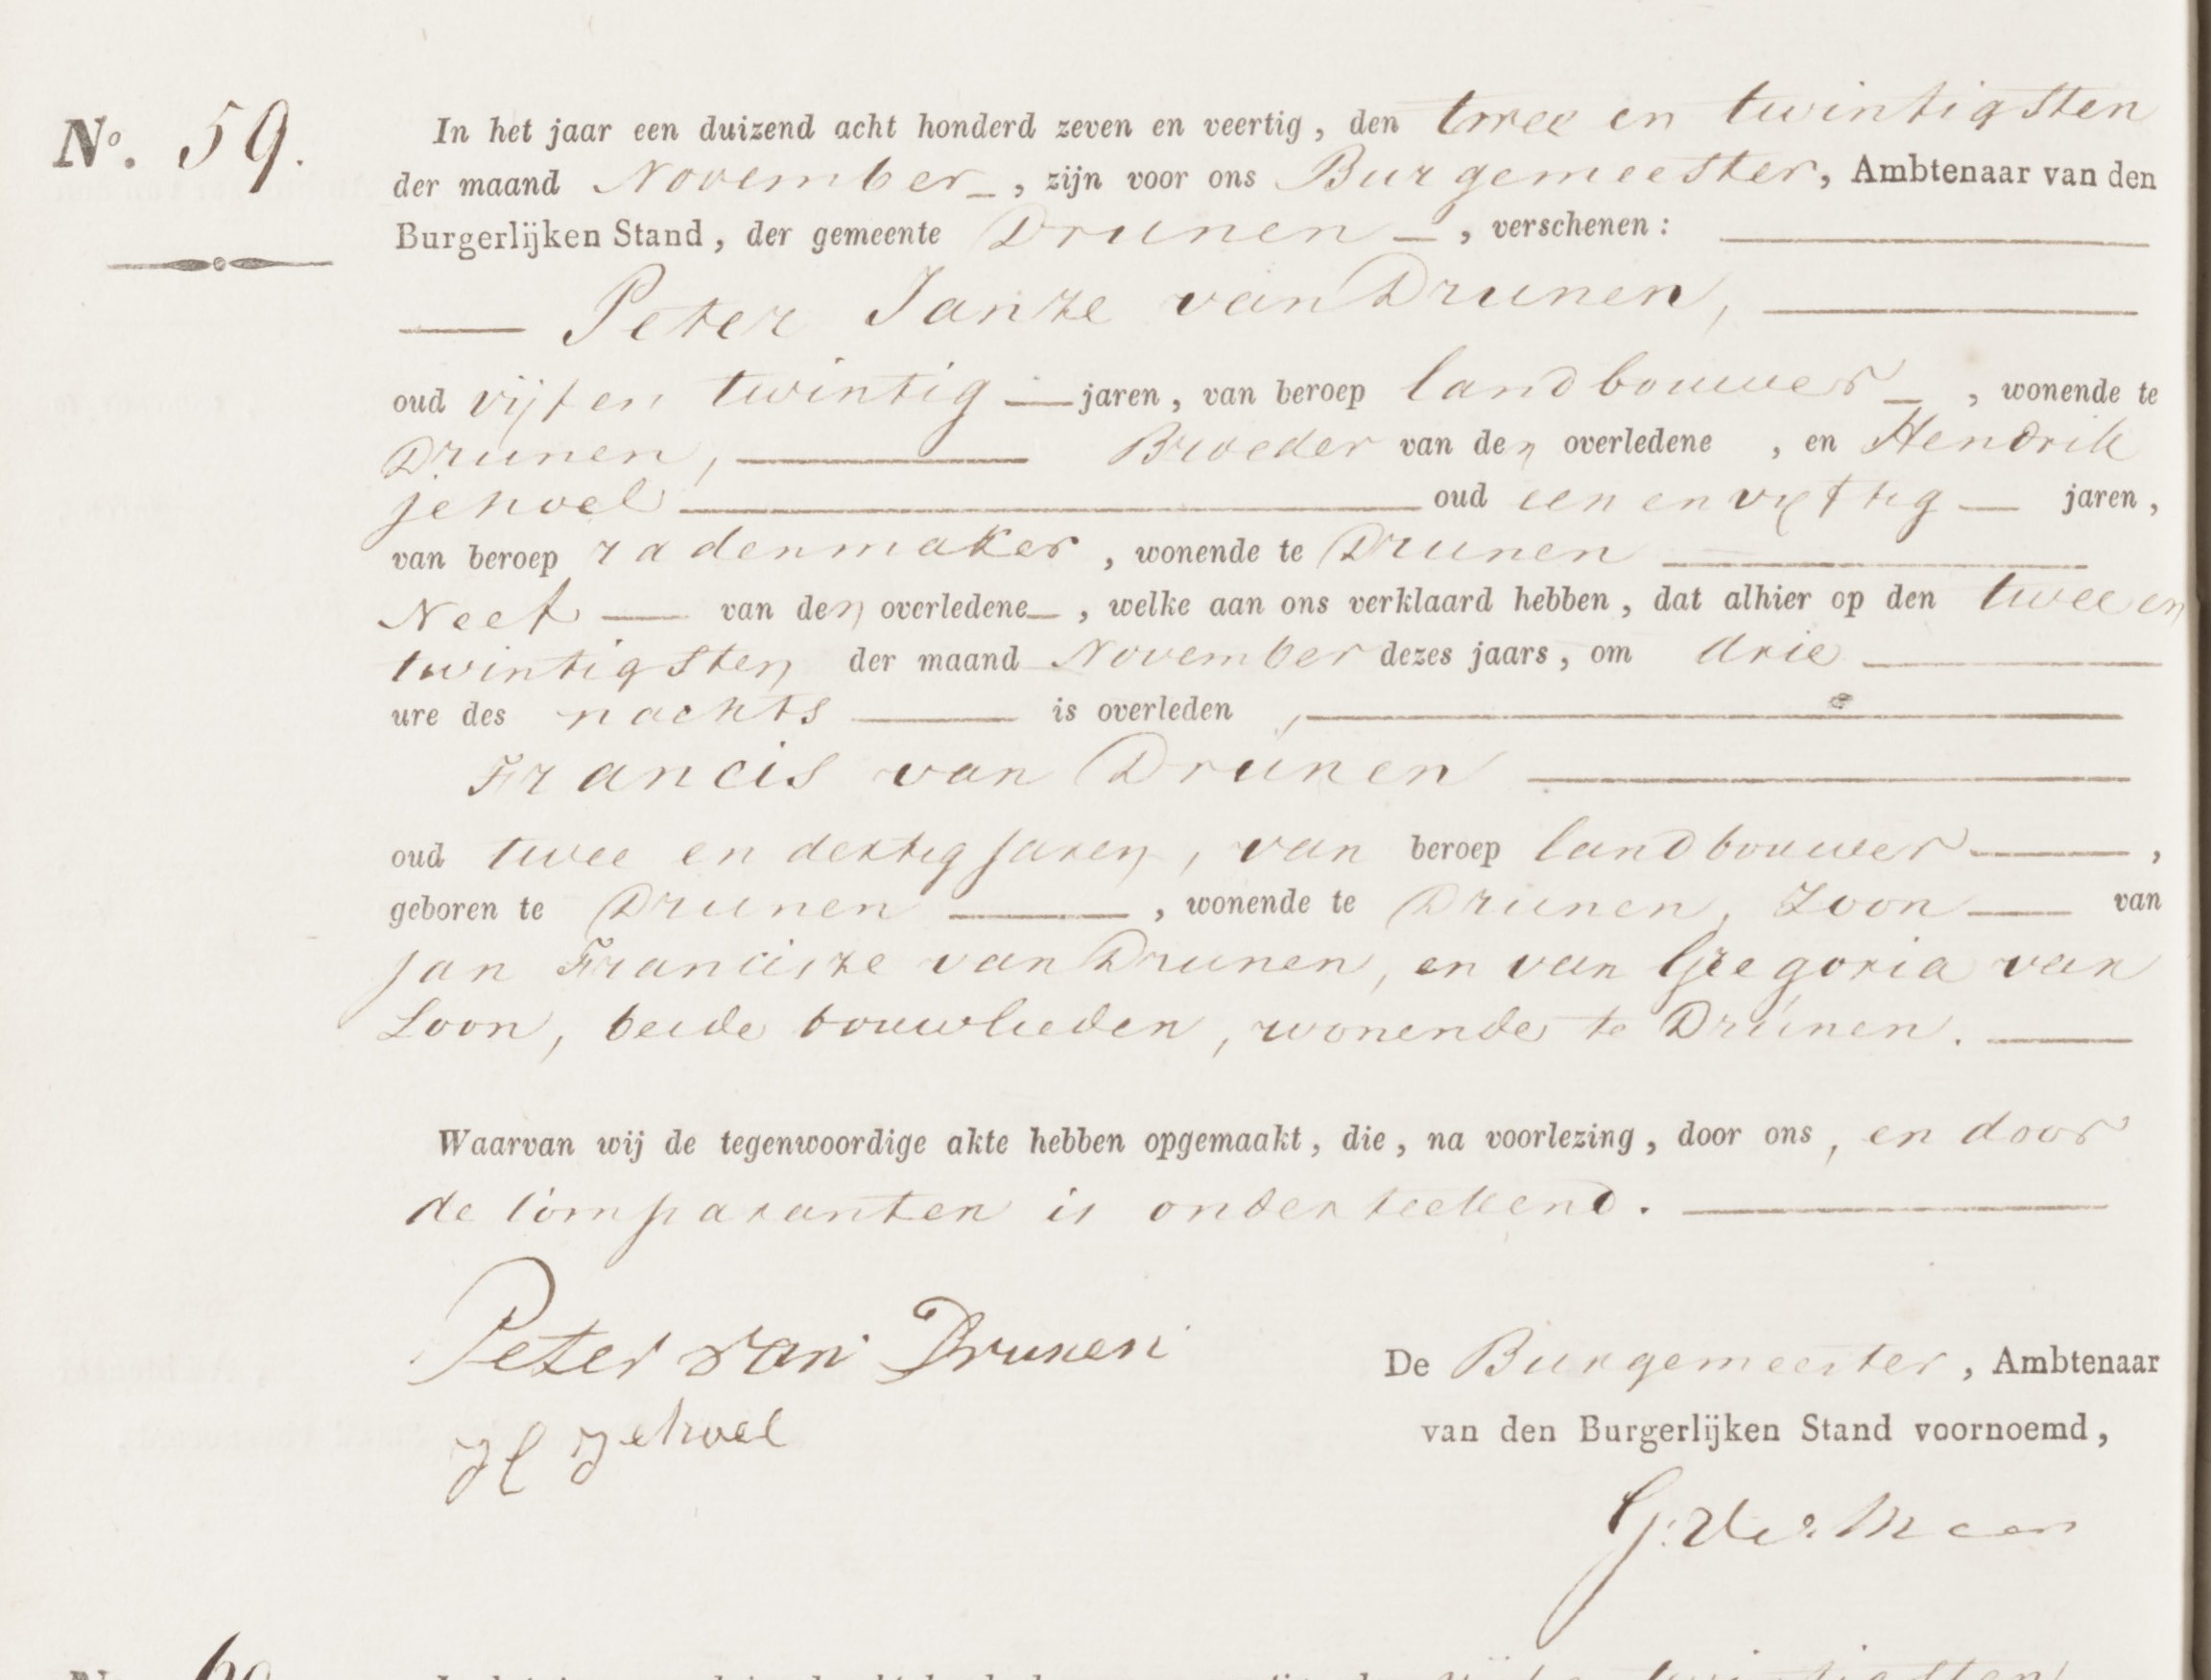 No. 59.
In het jaar een duizend acht honderd zeven en veertig, den twee en twintigsten
der maand November, zijn voor ons Burgemeester, Ambtenaar van den
Burgerlijken Stand, der gemeente Drunen, verschenen:
Peter Janze van Drunen,
oud vijf en twintig jaren, van beroep landbouwer, wonende te
Drunen, Broeder van den overledene, en Hendrik
jehoel oud een en vijftig jaren,
van beroep radenmaker, wonende te Drunen
Neef van den overledene, welke aan ons verklaard hebben, dat alhier op den twee en
twintigsten der maand November dezes jaars, om drie
ure des nachts is overleden,
Francis van Drunen
oud twee en dertig jaren, van beroep landbouwer,
geboren te Drunen, wonende te Drunen, Zoon van
Jan Francisze van Drunen, en van Gregoria van
Loon, beide bouwlieden, wonende te Drunen.
Waarvan wij de tegenwoordige akte hebben opgemaakt, die, na voorlezing, door ons, en door
de Comparanten is onderteekend.
Peter van Drunen
H jehoel
De Burgemeester, Ambtenaar
van den Burgerlijken Stand voornoemd,
No. 60